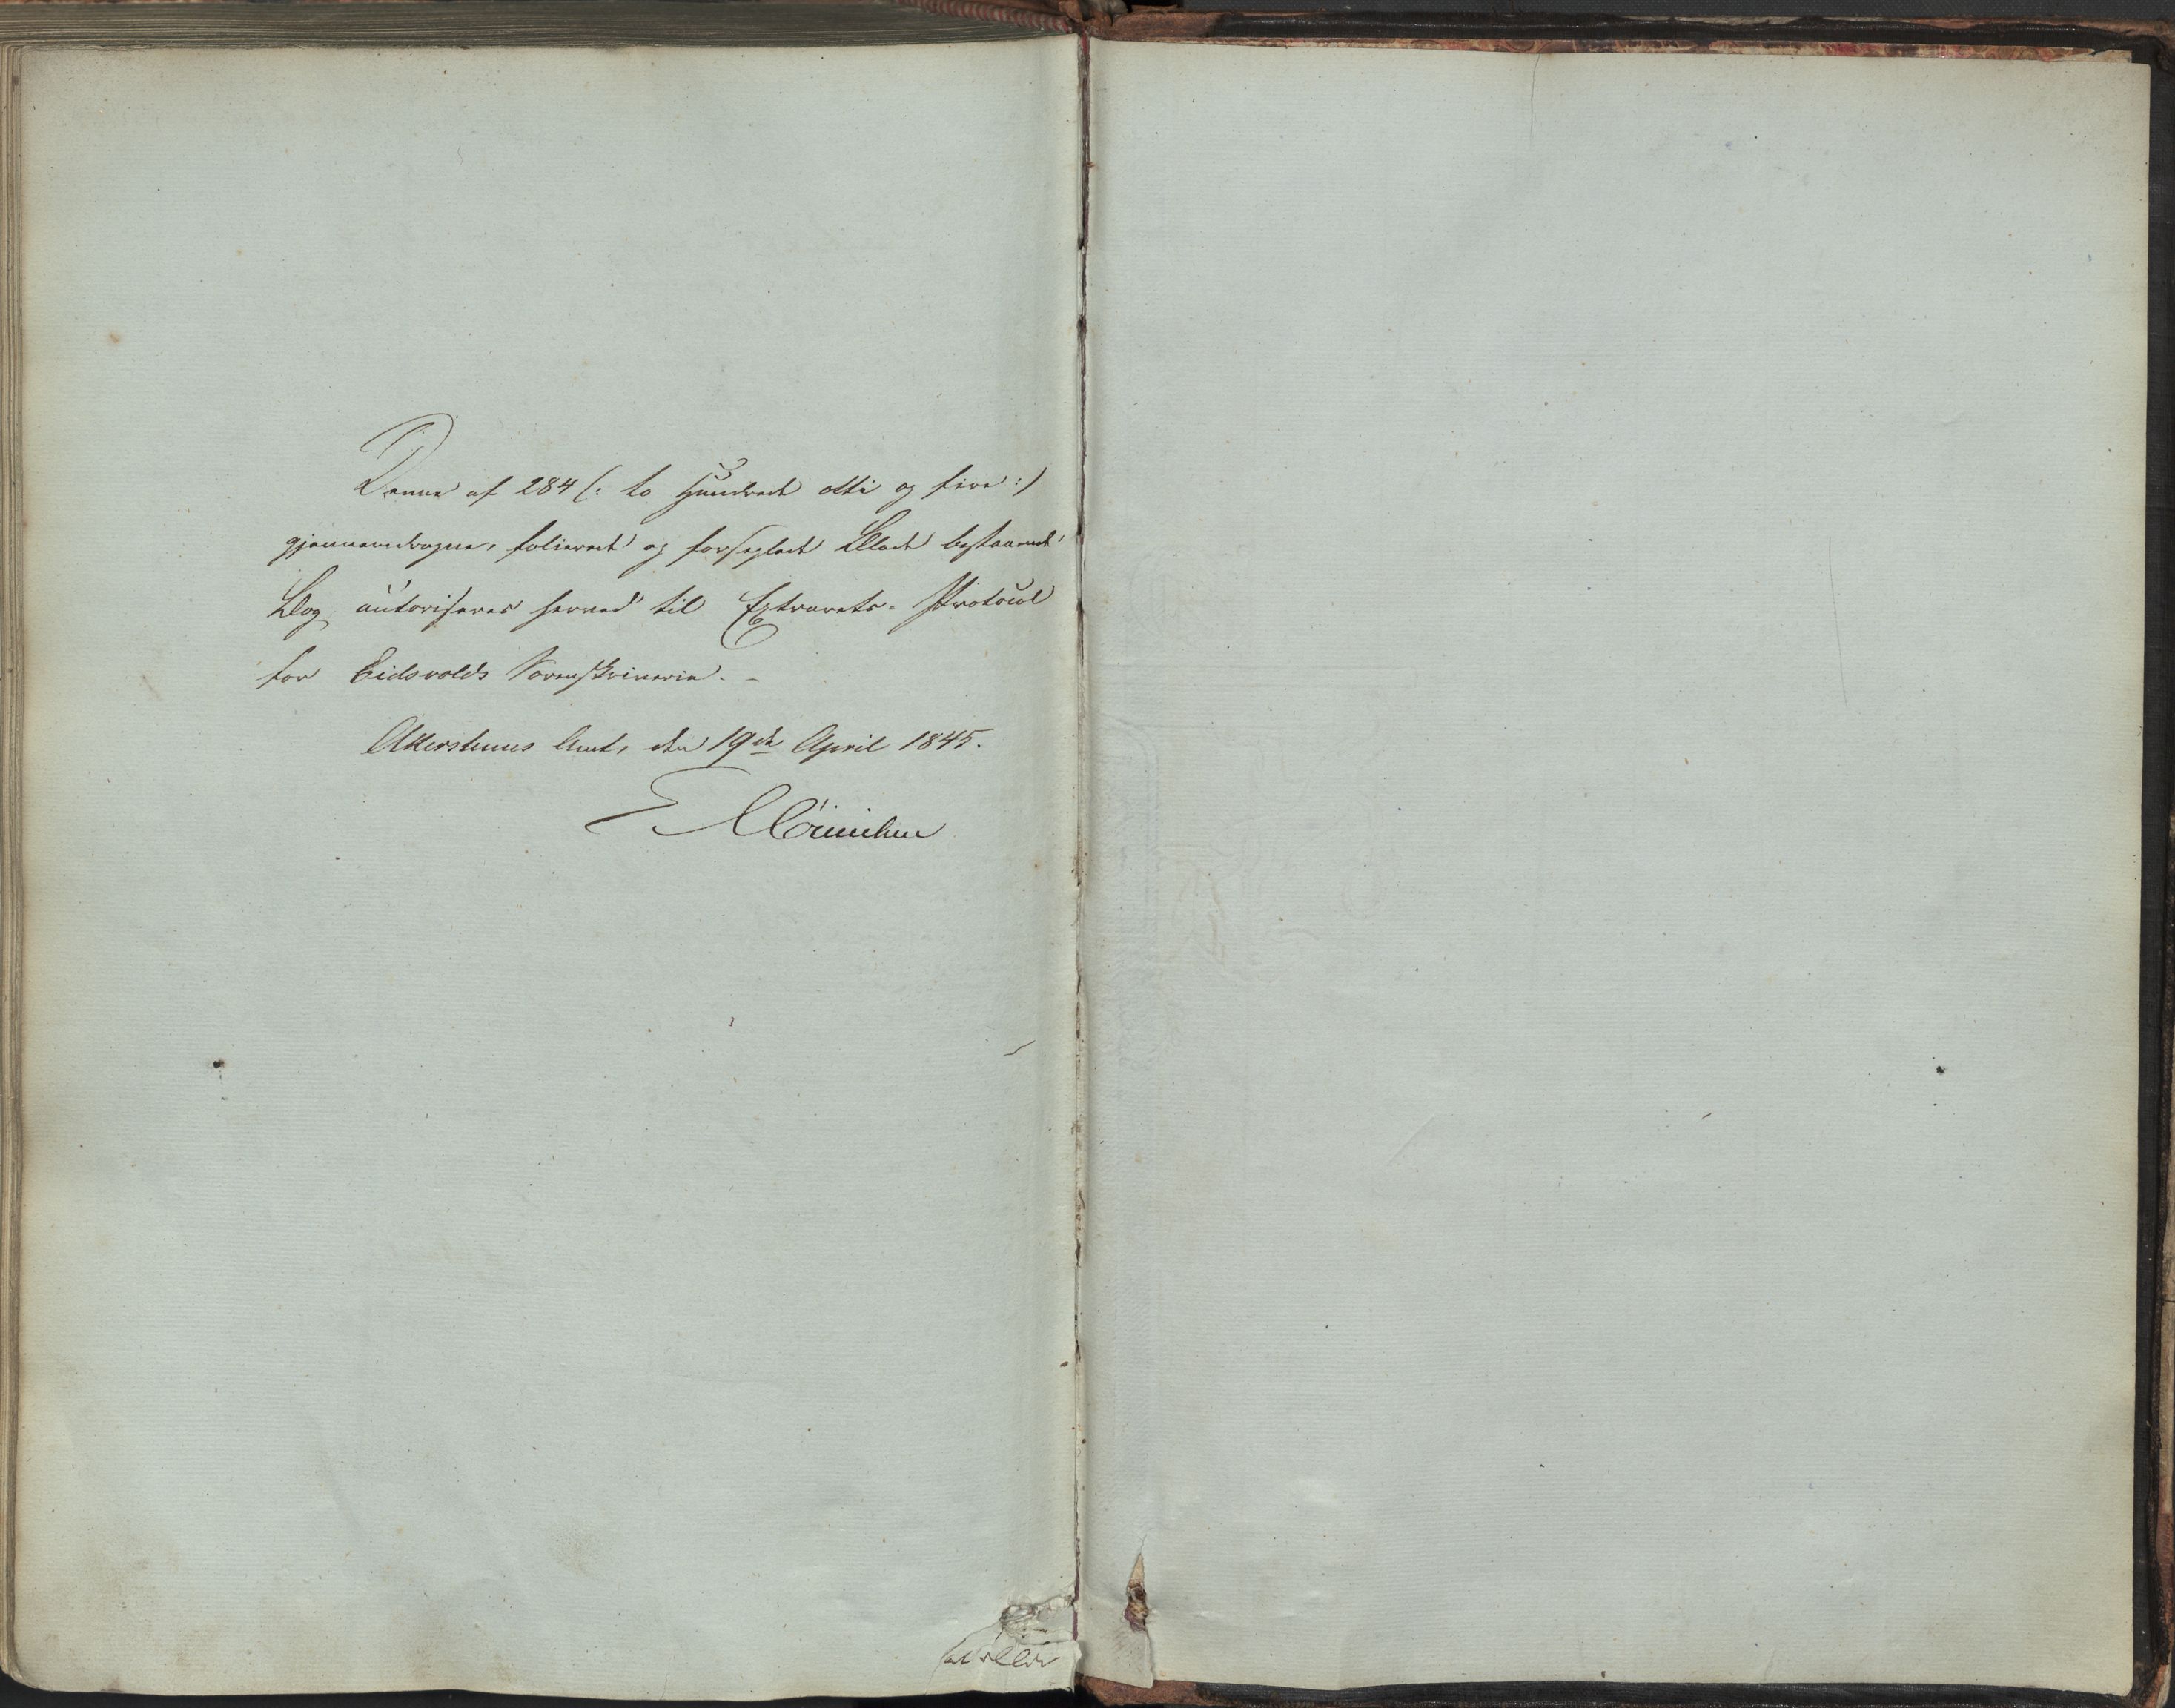 Denne af 284 (: to Hundrede otti og fire :)
gjennemdragne, folierede og forseglede Blade bestaaende
Bog, autoriseres herved til Extrarets-Protocol
for Eidsvolds Sorenskriverie. -
Akershuus Amt, den 19de April 1845.